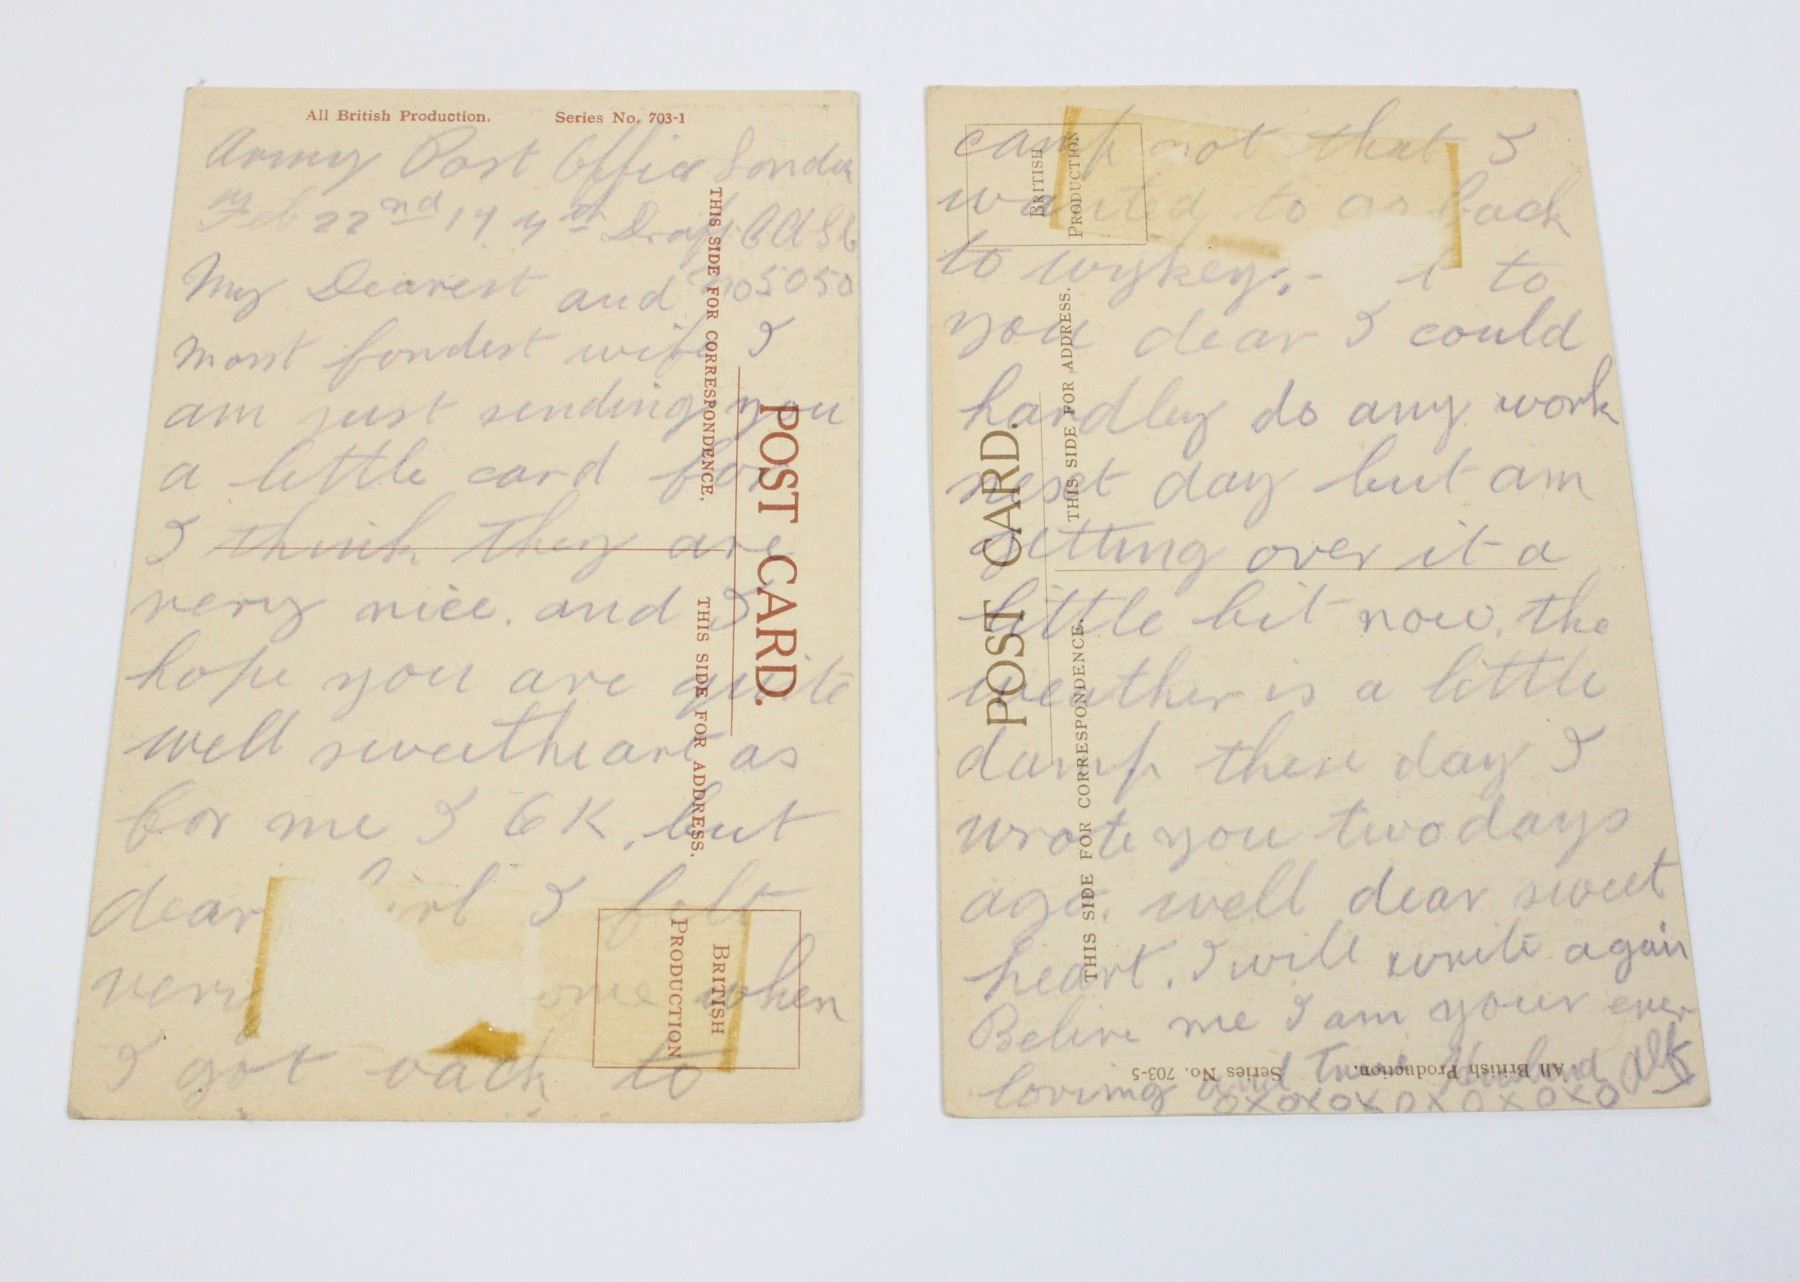 All British Production. Series No. 703-1
Army Post Office London
Feb 22nd 17 4th Draft
My Dearest and no 5050
most fondest wife I
am just sending you
a little card for
I think they are
very nice. and I
hope you are quite
well sweetheart as
for me I OK, but
dear girl I felt
very when
I got back to
THIS SIDE FOR CORRESPONDENCE.
THIS SIDE FOR ADDRESS.
POST CARD.
BRITISH
PRODUCTION
camp not that I
wanted to go back
to wykey, to
you dear I could
hardly do any work
next day but am
getting over it a
little bit now. the
weather is a little
damp these day I
wrote you two days
ago. well dear sweet
heart. I will write again
Belive me I am your ever
loving and True Husband Alf
oxoxoxoxoxoxo
BRITISH
PRODUCTION
POST CARD.
THIS SIDE FOR ADDRESS.
THIS SIDE FOR CORRESPONDENCE.
All British Production. Series No. 703-5